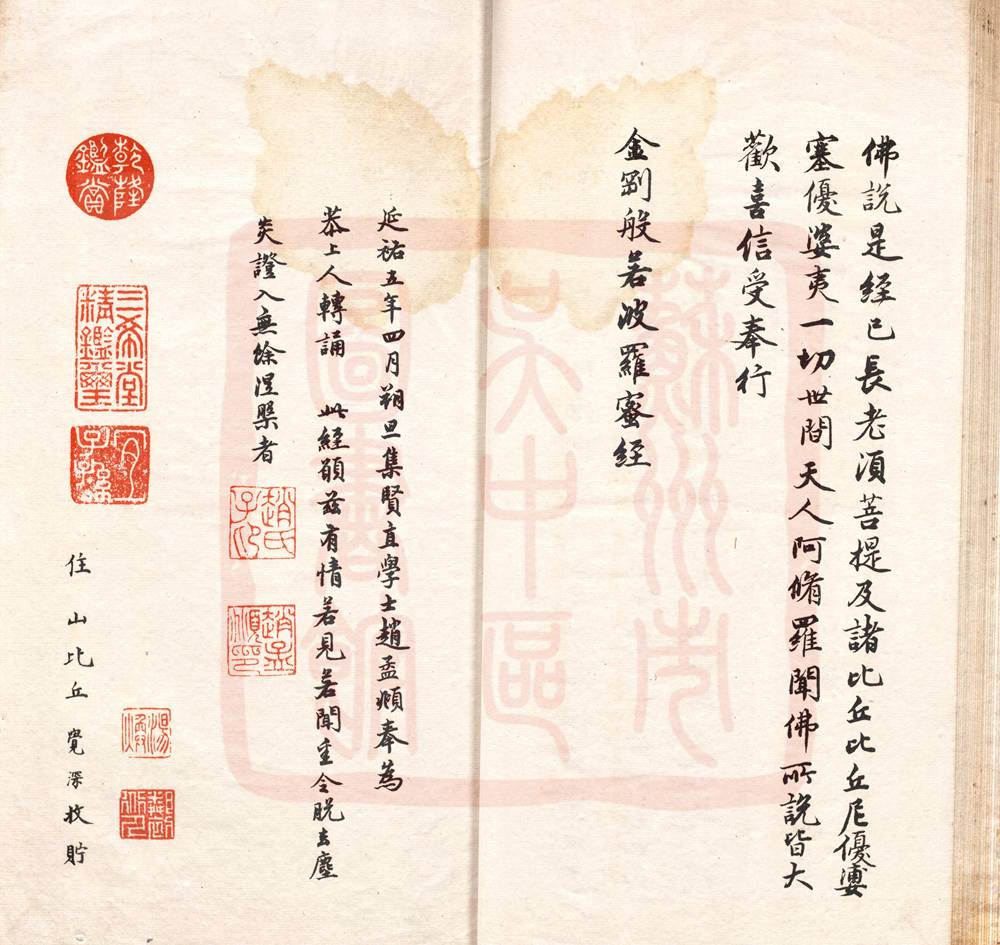 佛說是經已長老湏菩提及諸比丘比丘尼優婆
塞優婆夷一切世間天人阿脩羅聞佛所說皆大
歡喜信受奉行
金剛般若波羅蜜經
延祐五年四月朔旦集賢直學士趙孟頫奉為
恭上人轉誦 此經願茲有情若見若聞重令脫去塵
炎證入無餘涅槃者
趙氏子昂
趙孟頫印
住山比丘覺深收貯
乾隆鑑賞
三希堂精鑑璽
宜子孫
蘇州市
吳中區
圖書館